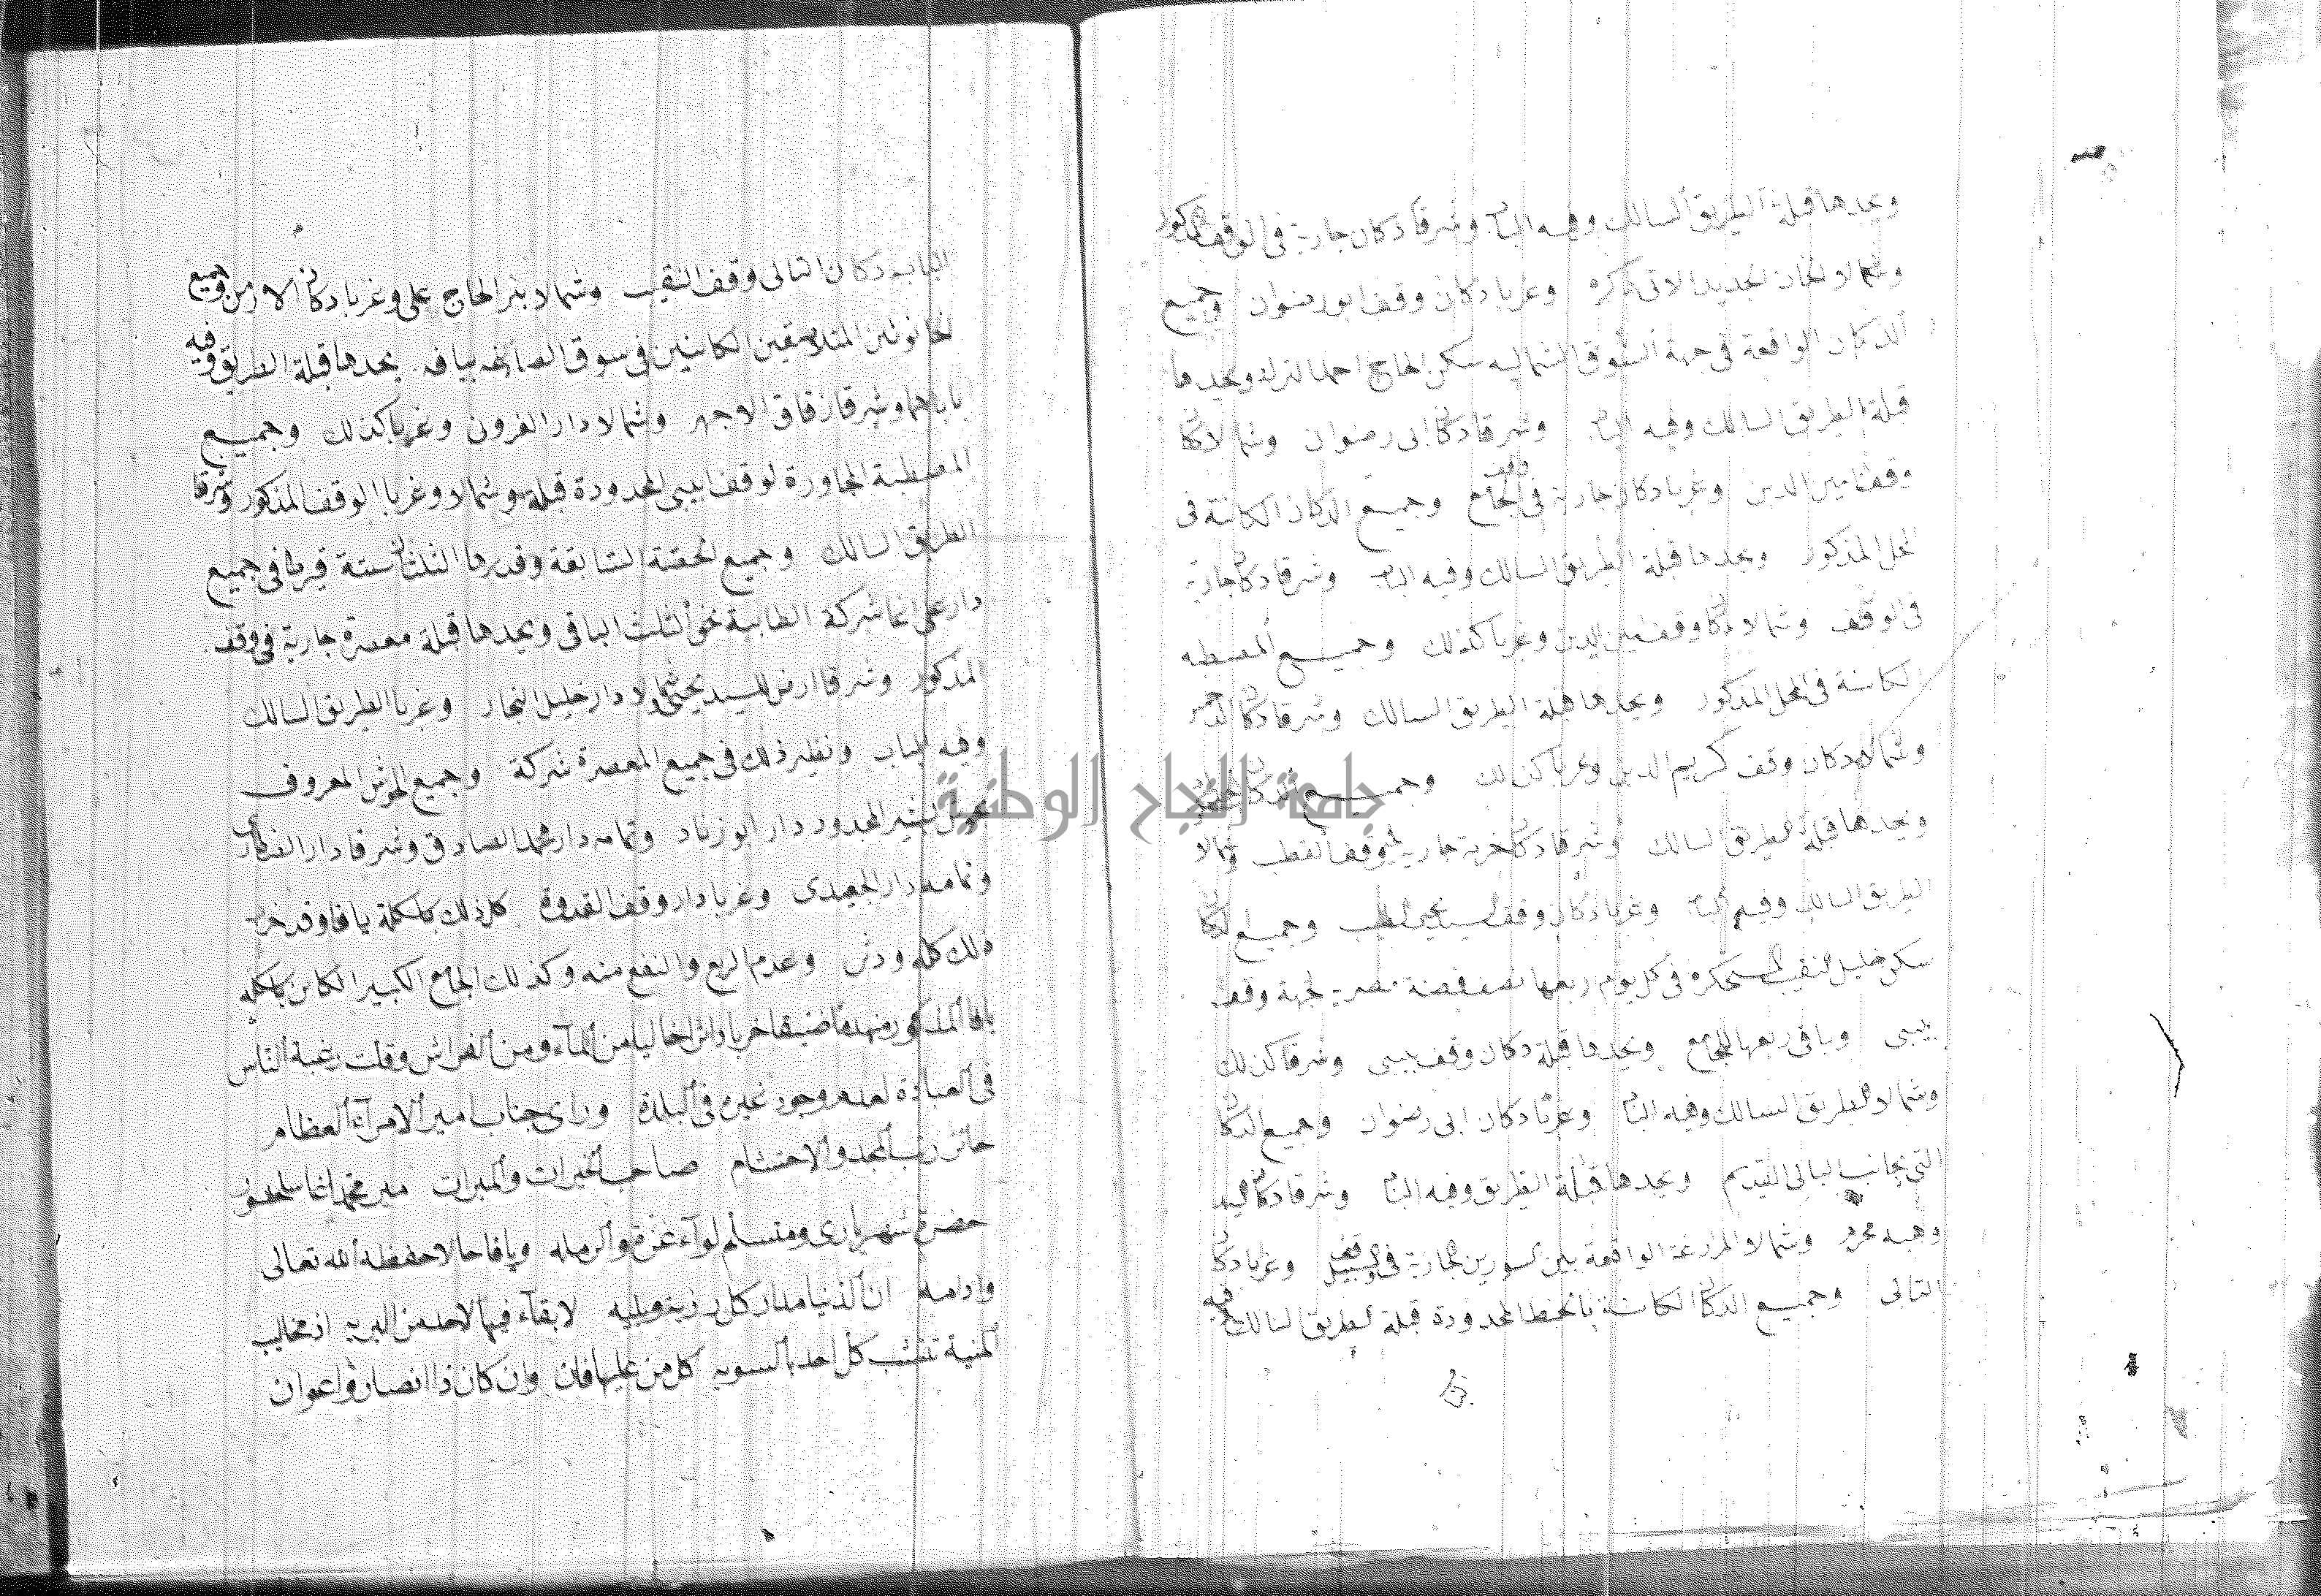 ويحدها قبلة الطريق السالك وفيه الباب وشرقا دكان جارية في الوقف المذكور
وشمالا الخان الجديد الاتي ذكره وغربا دكان وقف ابو رضوان وجميع
الدكان الواقعة في جهة السوق الشماليه سكن الحاج احمد ويحدها
قبلة الطريق السالك وفيه الباب وشرقا دكان ابي رضوان وشمالا دكان
وقف امين الدين وغربا دكان جارية في وقف الجامع وجميع الدكان الكائنة في
المحل المذكور ويحدها قبلة الطريق السالك وفيه الباب وشرقا دكان جارية
في الوقف وشمالا دكان وقف امين الدين وغربا كذلك وجميع المصطبه
الكائنة في المحل المذكور ويحدها قبلة الطريق السالك وشرقا دكان
وشمالا دكان وقف كريم الدين وغربا كذلك وجميع
ويحدها قبلة الطريق السالك وشرقا دكان خربة جارية وقف القطب وشمالا
الطريق السالك وفيه الباب وغربا دكان وقف وجميع الدكان
سكن خليل النقيب المستحكره في كل يوم ربعها نصف فضة مصرية لجهة وقف
بيبي وباقي ربعها للجامع ويحدها قبلة دكان وقف بيبي وشرقا كذلك
وشمالا الطريق السالك وفيه الباب وغربا دكان ابي رضوان وجميع الدكان
التي بجانب القديم ويحدها قبلة الطريق وفيه الباب وشرقا دكان السيد
وهبه محرم وشمالا المزرعة الواقعة بين السورين الجارية في وقف السبيل وغربا دكان
التالي وجميع الدكان الكائنة بالخط المحدودة قبلة الطريق السالك وفيه
الباب دكان التالي وقف النقيب وشمالا بئر الحاج علي وغربا دكان الارمن وجميع
الحانوتين المتلاصقين الكائنين في سوق الصاغه بيافه يحدها قبلة الطريق وفيه
بابهما وشرقا زقاق الاجهر وشمالا دار الفرون وغربا كذلك وجميع
المصطبة المجاورة لوقف بيبي المحدودة قبلة وشمالا وغربا الوقف المذكور وشرقا
الطريق السالك وجميع الحصة السابقة وقدرها الثلثان ستة قيراط في جميع
دار علي اغا شركة الطابية نحو الثلث الباقي ويحدها قبلة معصرة جارية في وقف
المذكور وشرقا ارض للسيد يحيى وشمالا دار خليل النجار وغربا الطريق السالك
وفيه الباب ونظير ذلك في جميع المعصرة شركة وجميع الحوش المعروف
بحوش المحدود دار ابو زناد وتمامه دار محمد الصادق وشرقا دار
وتمامه دار الجعيدي وغربا دار وقف القدوة كل ذلك باسكلة يافا وقد خرب
ذلك كله ودثر وعدم الريع والنفع منه وكذلك الجامع الكبير الكائن باسكله
يافا المذكور منهدما ضيقا خرابا داثرا خاليا من الماء ومن الفراش وقلت رغبة الناس
في العبادة لعدم وجود غيره في البلدة وراى جناب امير الامرآء العظام
حائز رتب المجد والاحتشام صاحب الخيرات والمبرات مير محمد اغا سلحشور
حضرة شهرياري ومتسلم لوآء غزة والرمله ويافا حالا حفظه الله تعالى
وادامه ان الدنيا مدار كل رزية وبليه لا بقآء فيها لاحد من البريه اذ مخاليب
المنية تنشب كل احد بالسويه كل من عليها فان وان كان ذا انصار واعوان
جامعة النجاح الوطنية